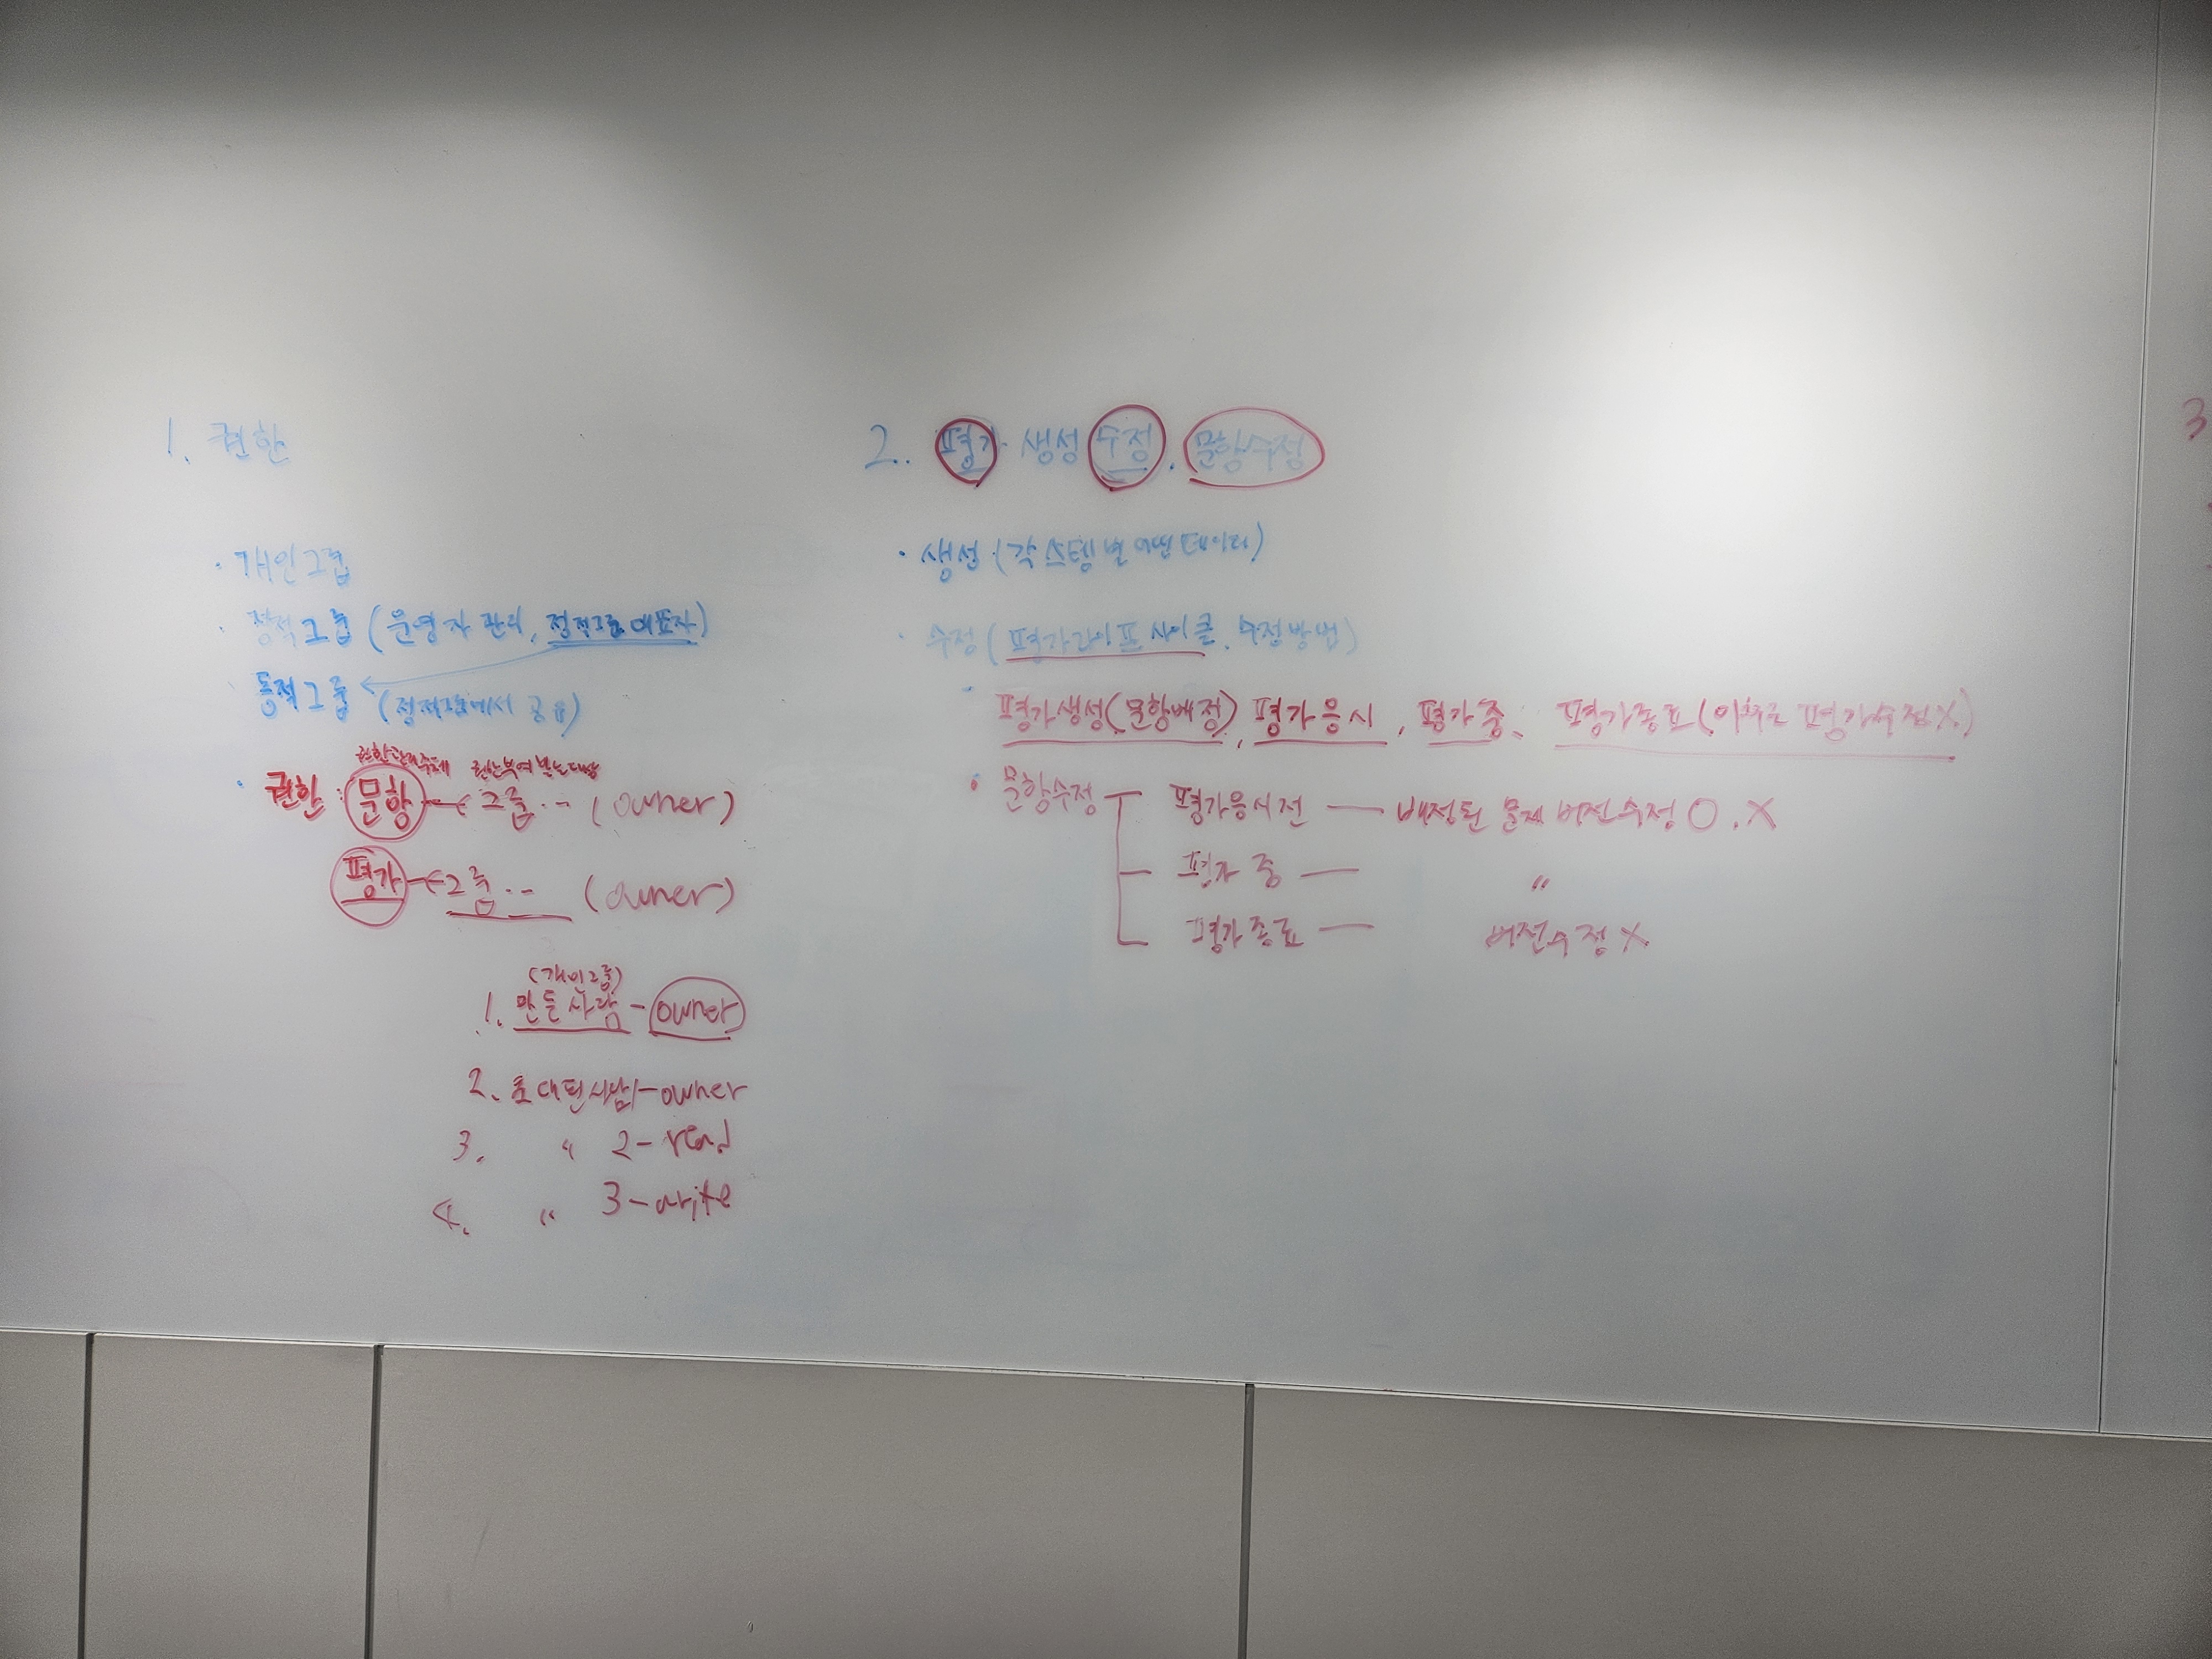 1. 권한
· 개인그룹
· 정적그룹 (운영자 관리, 정적그룹 대표자)
동적그룹 (정적그룹에서 공유)
권한부여받는대상
· 권한 : 문항 그룹 ·· (owner)
평가 그룹 ·· (owner)
(개인그룹)
1. 만든사람 - owner
2. 초대된사람1 - owner
3. 〃 2 - read
4. 〃 3 - write
2. 평가 생성 수정. 문항수정
· 생성 (각 스텝별 어떤 데이터)
· 수정 (평가라이프 사이클. 수정방법)
· 평가생성(문항배정), 평가응시, 평가중, 평가종료(이후로 평가수정X)
· 문항수정 평가응시전 — 배정된 문제 버전수정 O . X
평가 중 — 〃
평가종료 — 버전수정 X
3